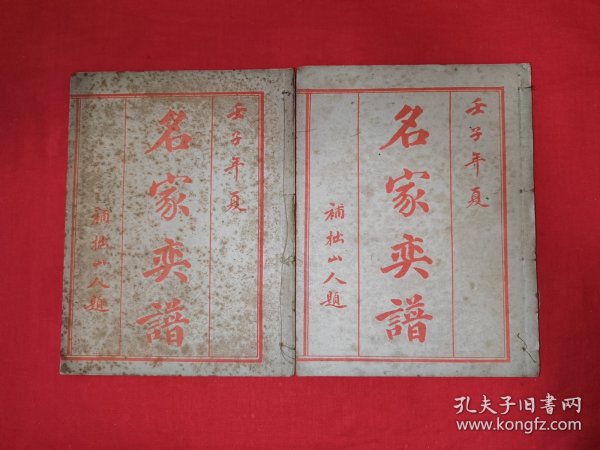 壬子年夏
名家奕譜
補拙山人題
壬子年夏
名家奕譜
補拙山人題
孔夫子旧書网
www.kongfz.com